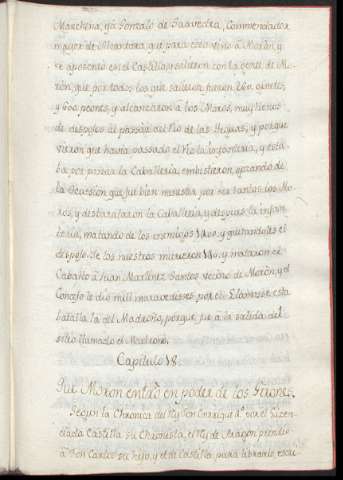 Marchena, y à Gonzalo de Saavedra, Commendador
mayor de Alcantara, que para esto vino à Moròn, y
se aposentò en el Castillo, y salieron con la gente de Mo-
ròn, que por todos los que salieron fueron 260. ginetes,
y 600. peones, y alcanzaron à los Moros, muy llenos
de despojos al passar del Rio de las Yeguas, y porque
vieron que havia passado el Rio la infanteria, y esta-
ba por passar la Caballeria, embistieron, gozando de
la Ocassion, que fuè bien menester por ser tantos los Mo-
ros, y disbarataron la Caballeria, y despues la infan-
teria, matando de los enemigos y quitandoles el
despojo. De los nuestros murieron y mataron el
Caballo à Juan Martinez Santos vecino de Moròn, y el
Concejo le dio mill maravedisses por el. Llamasse esta
batalla la del Madroño, porque fue à la salida del
sitio llamado el Madroño.
Capitulo
Que Moron entrò en poder de los Girones.
Segun la Chronica del Rey Don Enrique 4.º por el Licen-
ciado Castillo su Chronista, el Rey de Aragon prendio
à Don Carlos su hijo, y el de Castilla para librarlo, escri